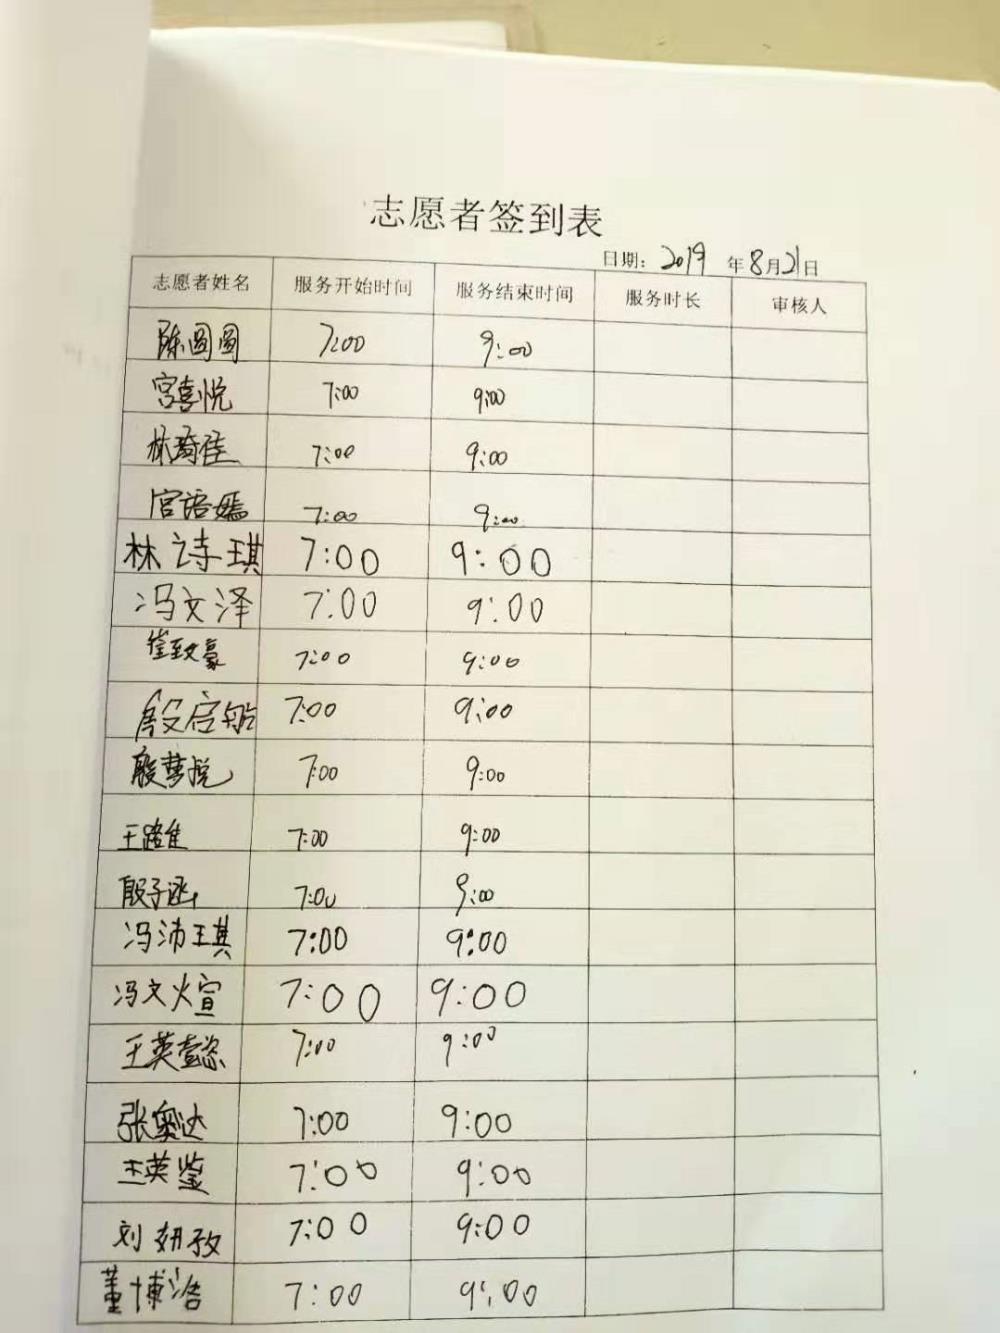 志愿者签到表
日期: 2019 年8月21日
志愿者姓名 服务开始时间 服务结束时间 服务时长 审核人
陈圆圆 7:00 9:00
宫喜悦 7:00 9:00
林琦佳 7:00 9:00
官语嫣 7:00 9:00
林诗琪 7:00 9:00
冯文泽 7:00 9:00
崔致豪 7:00 9:00
殷启航 7:00 9:00
殷梦悦 7:00 9:00
王路佳 7:00 9:00
殷子涵 7:00 9:00
冯沛琪 7:00 9:00
冯文煊 7:00 9:00
王英懿 7:00 9:00
张奥达 7:00 9:00
7:00 9:00
刘妍孜 7:00 9:00
董博浩 7:00 9:00